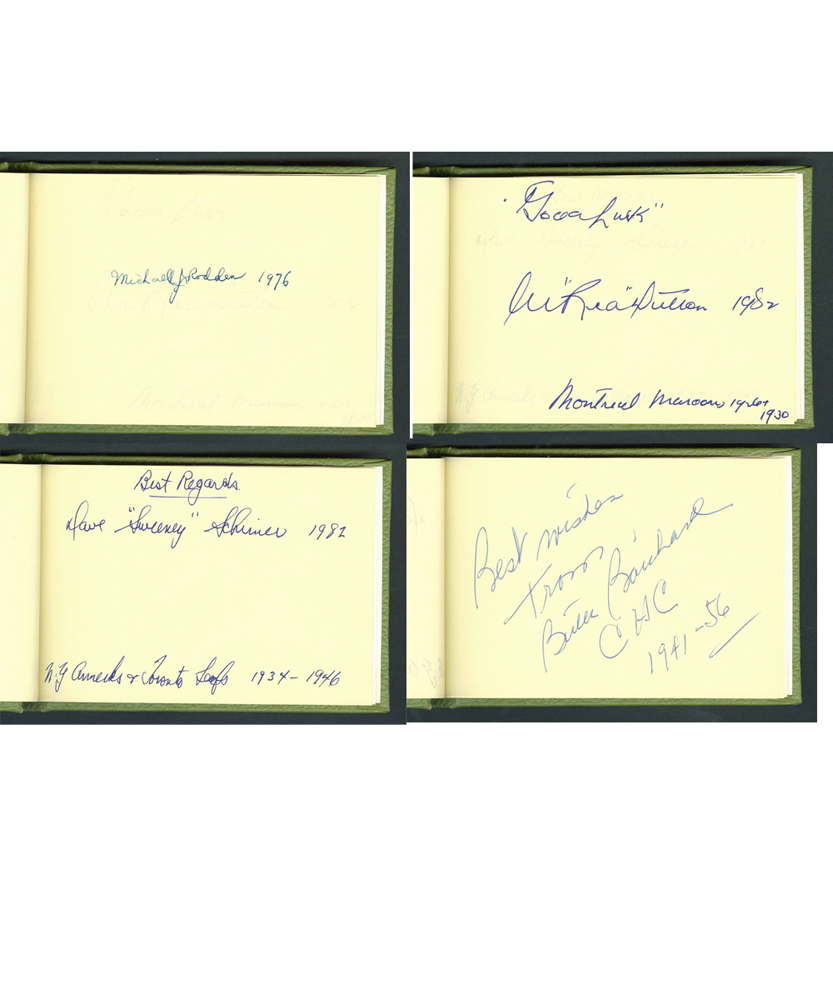 Michael J Rodden 1976
"Good Luck"
M "Red" Dutton 1982
Montreal Maroons 1926 to
1930
Best Regards
Dave "Sweeney" Schriner 1982
N.Y Americks & Toronto Leafs 1934 - 1946
Best wishes
from
Butch Bouchard
C H C
1941-56